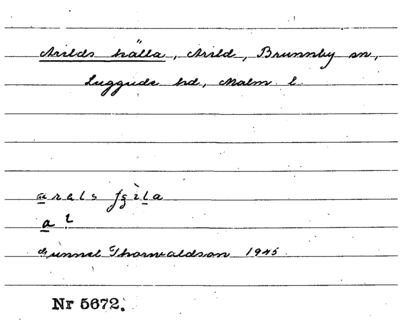 Arilds källa, Arild, Brunnby sn,
Luggude hd, Malm. l.
a r a l s
a l
Gunnel Thorwaldson 1945
Nr 5672.